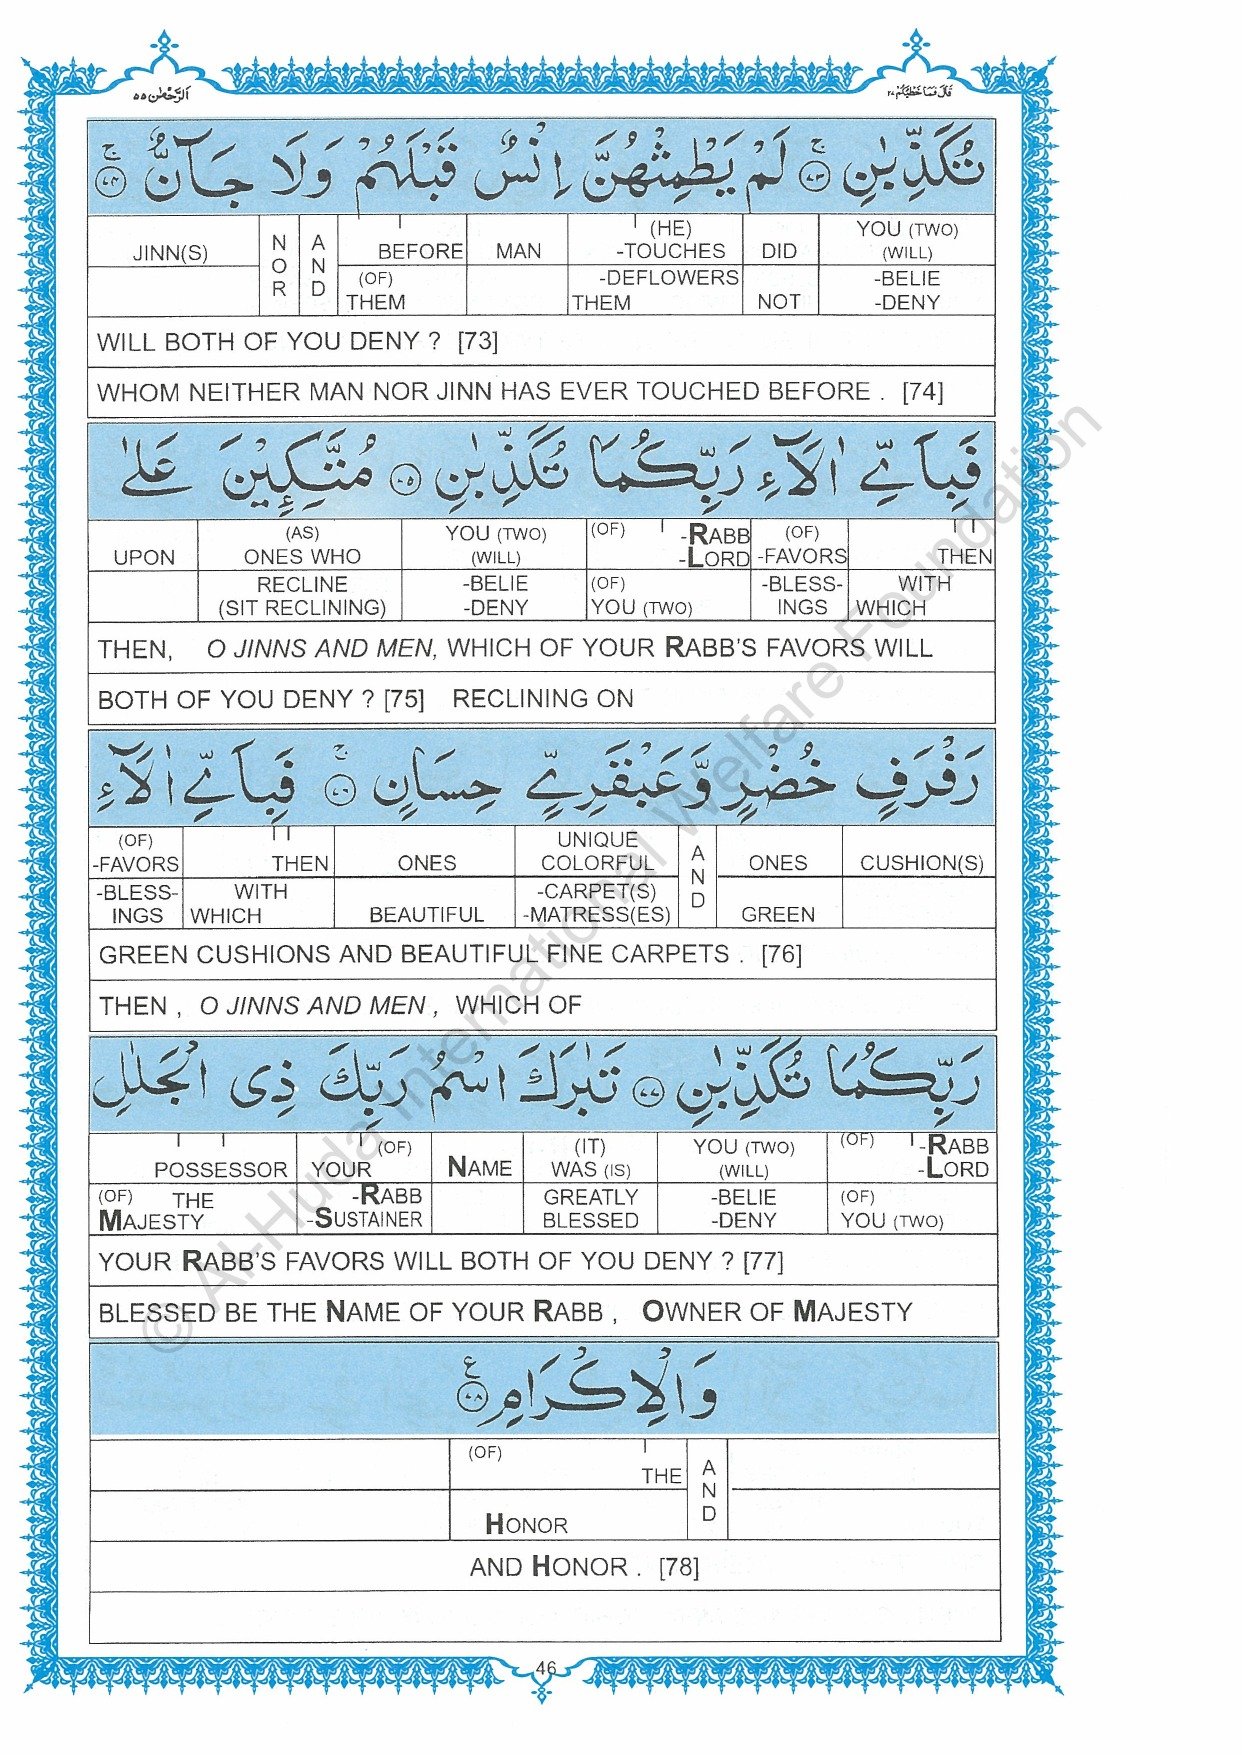 اَلرَّحْمٰن ٥٥
قَالَ فَمَا خَطْبُكُمْ ٢٧
تُكَذِّبٰنِ ﴿٧٣﴾ۚ لَمْ يَطْمِثْهُنَّ اِنْسٌ قَبْلَهُمْ وَلَا جَآنٌّ ﴿٧٤﴾ۚ
JINN(S) NOR AND BEFORE MAN (HE) -TOUCHES DID YOU (TWO) (WILL)
(OF) THEM -DEFLOWERS THEM NOT -BELIE -DENY
WILL BOTH OF YOU DENY ? [73]
WHOM NEITHER MAN NOR JINN HAS EVER TOUCHED BEFORE . [74]
فَبِاَيِّ اٰلَآءِ رَبِّكُمَا تُكَذِّبٰنِ ﴿٧٥﴾ مُتَّكِـِٕيْنَ عَلٰى
UPON (AS) ONES WHO YOU (TWO) (WILL) (OF) -RABB -LORD (OF) -FAVORS THEN
RECLINE (SIT RECLINING) -BELIE -DENY (OF) YOU (TWO) -BLESS- INGS WITH WHICH
THEN, O JINNS AND MEN, WHICH OF YOUR RABB'S FAVORS WILL
BOTH OF YOU DENY ? [75] RECLINING ON
رَفْرَفٍ خُضْرٍ وَّعَبْقَرِيٍّ حِسَانٍ ﴿٧٦﴾ۚ فَبِاَيِّ اٰلَآءِ
(OF) -FAVORS THEN ONES UNIQUE COLORFUL AND ONES CUSHION(S)
-BLESS- INGS WITH WHICH BEAUTIFUL -CARPET(S) -MATRESS(ES) GREEN
GREEN CUSHIONS AND BEAUTIFUL FINE CARPETS . [76]
THEN , O JINNS AND MEN , WHICH OF
رَبِّكُمَا تُكَذِّبٰنِ ﴿٧٧﴾ تَبٰرَكَ اسْمُ رَبِّكَ ذِى الْجَلٰلِ
POSSESSOR (OF) YOUR NAME (IT) WAS (IS) YOU (TWO) (WILL) (OF) -RABB -LORD
(OF) THE MAJESTY -RABB -SUSTAINER GREATLY BLESSED -BELIE -DENY (OF) YOU (TWO)
YOUR RABB'S FAVORS WILL BOTH OF YOU DENY ? [77]
BLESSED BE THE NAME OF YOUR RABB , OWNER OF MAJESTY
وَالْاِكْرَامِ ﴿٧٨﴾ ع
(OF) THE AND
HONOR
AND HONOR . [78]
46
© Al-Huda International Welfare Foundation